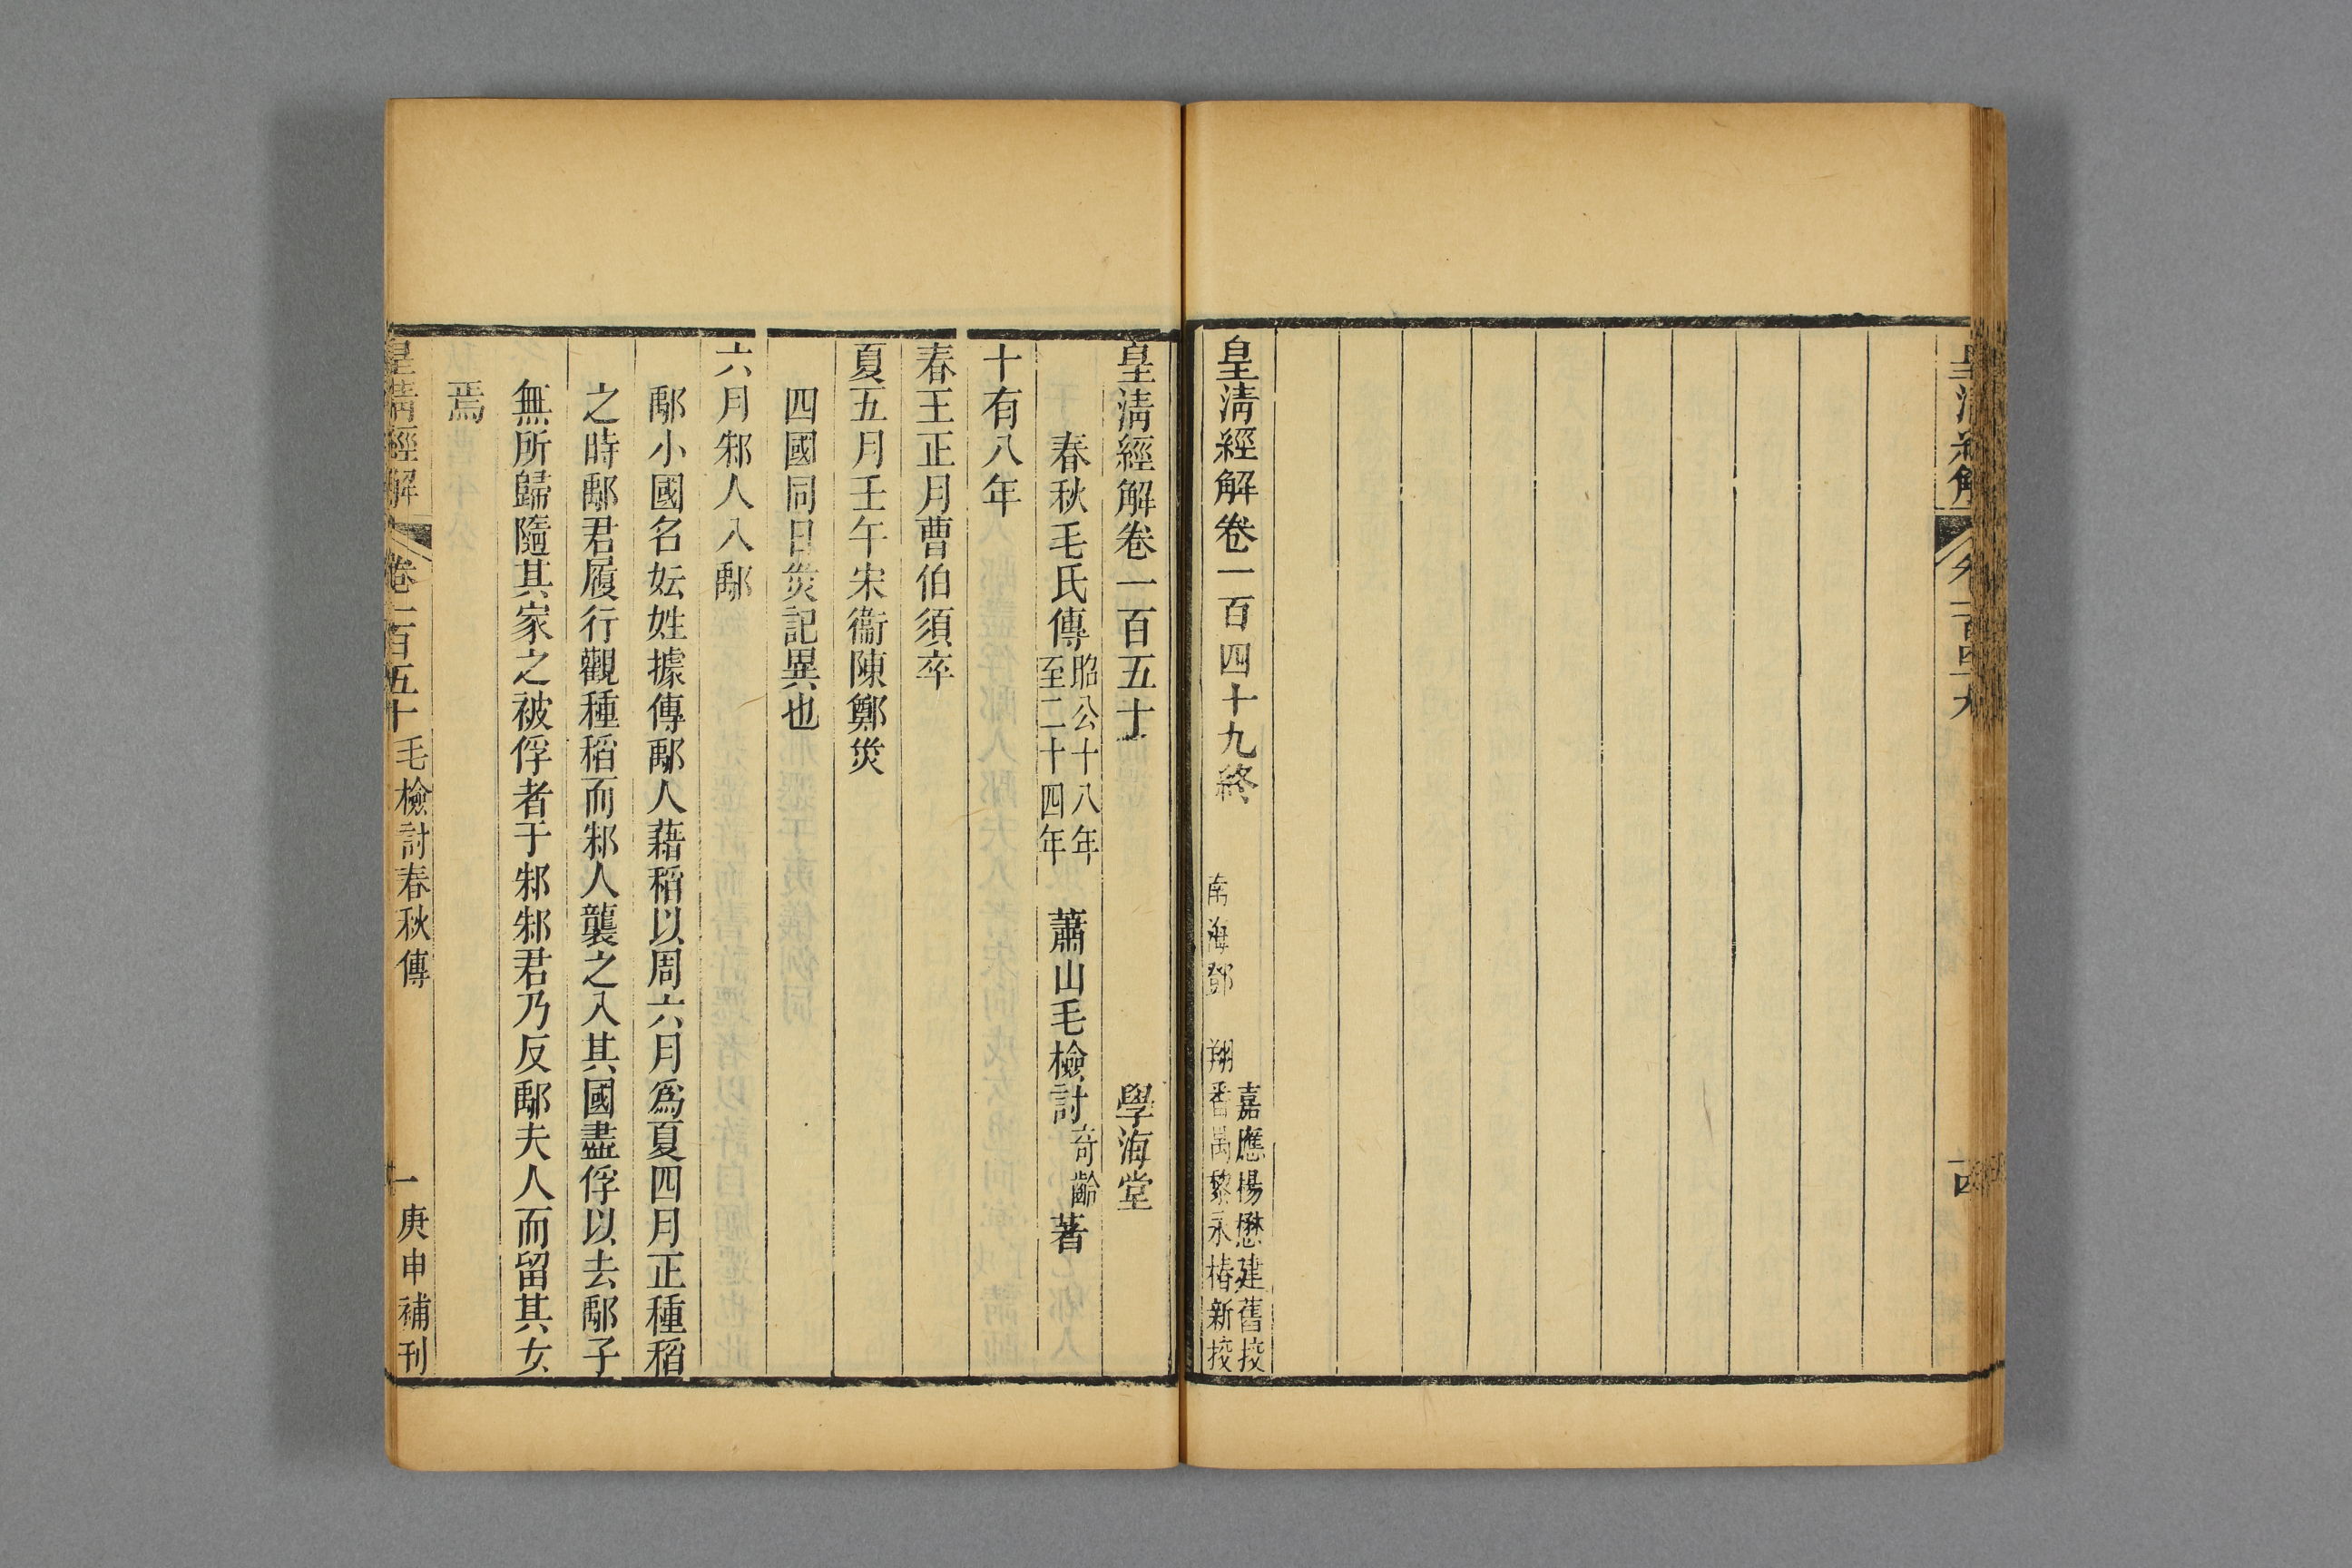 皇清經解卷一百四十九終
嘉應楊懋建舊挍
南海鄧翔番禺黎永椿新挍
皇清經解卷一百五十
學海堂
春秋毛氏傳
昭公十八年
至二十四年
蕭山毛檢討奇齡著
十有八年
春王正月曹伯須卒
夏五月壬午宋衞陳鄭災
四國同日災記異也
六月邾人入鄅
鄅小國名妘姓據傳鄅人藉稻以周六月爲夏四月正種稻
之時鄅君履行觀種稻而邾人襲之入其國盡俘以去鄅子
無所歸隨其家之被俘者于邾邾君乃反鄅夫人而留其女
焉
皇清經解
卷一百五十
毛檢討春秋傳
一
庚申補刊